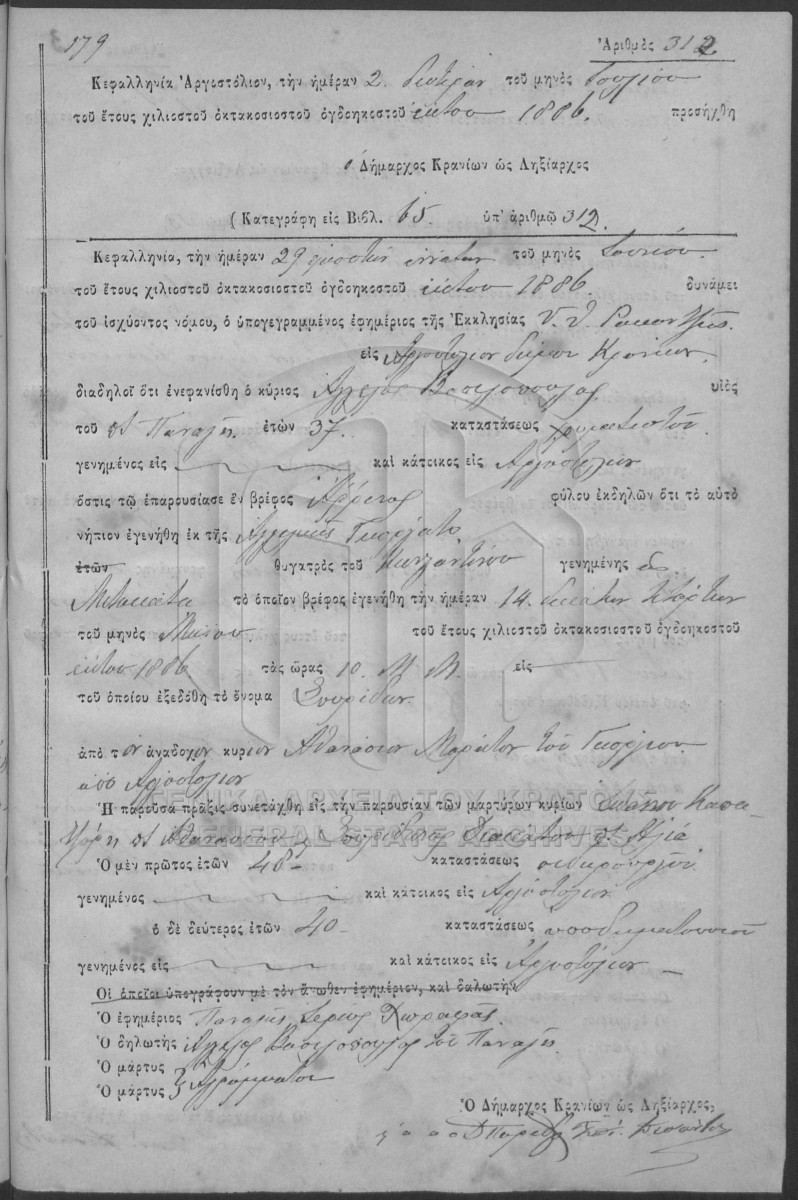 179 Ἀριθμὸς 312
Κεφαλληνία Ἀργοστόλιον, τὴν ἡμέραν 2. δευτέραν τοῦ μηνὸς Ἰουλίου
τοῦ ἔτους χιλιοστοῦ ὀκτακοσιοστοῦ ὀγδοηκοστοῦ ἕκτου 1886. προσήχθη
ὁ Δήμαρχος Κρανίων ὡς Ληξίαρχος
(Κατεγράφη εἰς Βιβλ. 65. ὑπ' ἀριθμῷ 312.
Κεφαλληνία, τὴν ἡμέραν 29 εἰκοστὴν ἐννάτην τοῦ μηνὸς Ἰουνίου.
τοῦ ἔτους χιλιοστοῦ ὀκτακοσιοστοῦ ὀγδοηκοστοῦ ἕκτου 1886. δυνάμει
τοῦ ἰσχύοντος νόμου, ὁ ὑπογεγραμμένος ἐφημέριος τῆς Ἐκκλησίας
εἰς Ἀργοστόλιον δήμου Κρανίων.
διαδηλοῖ ὅτι ἐνεφανίσθη ὁ κύριος Ἄγγελος Βασιλόπουλος υἱὸς
τοῦ Παναγῆ. ἐτῶν 37. καταστάσεως χρωματιστοῦ
γενημένος εἰς καὶ κάτοικος εἰς Ἀργοστόλιον
ὅστις τῷ ἐπαρουσίασε ἓν βρέφος ἄρρενος φύλου ἐκδηλῶν ὅτι τὸ αὐτὸ
νήπιον ἐγενήθη ἐκ τῆς Ἀγγελικῆς Γεωργάτο
ἐτῶν θυγατρὸς τοῦ Κωνσταντίνου γενημένης εἰς
Μεταξάτα τὸ ὁποῖον βρέφος ἐγενήθη τὴν ἡμέραν 14. δεκάτην τετάρτην
τοῦ μηνὸς Μαΐου. τοῦ ἔτους χιλιοστοῦ ὀκτακοσιοστοῦ ὀγδοηκοστοῦ
ἕκτου 1886. τὰς ὥρας 10. Μ. Μ. εἰς
τοῦ ὁποίου ἐξεδόθη τὸ ὄνομα Σπυρίδων.
ἀπὸ τὸν ἀνάδοχον κύριον Ἀθανάσιον Μαράτον τοῦ Γεωργίου
ἀπὸ Ἀργοστόλιον
ΓΕΝΙΚΑ ΑΡΧΕΙΑ ΤΟΥ ΚΡΑΤΟΥΣ
Ἡ παροῦσα πρᾶξις συνετάχθη εἰς τὴν παρουσίαν τῶν μαρτύρων κυρίων
GENERAL STATE ARCHIVES
Ἀθανασίου Σπυρίδωνος Ἠλία
Ὁ μὲν πρῶτος ἐτῶν 48 καταστάσεως σιδηρουργοῦ
γενημένος καὶ κάτοικος εἰς Ἀργοστόλιον
ὁ δὲ δεύτερος ἐτῶν 40 καταστάσεως ὑποδηματοποιοῦ
γενημένος εἰς καὶ κάτοικος εἰς Ἀργοστόλιον
Οἱ ὁποῖοι ὑπογράφουν μὲ τὸν ἄνωθεν ἐφημέριον, καὶ δηλωτήν
Ὁ ἐφημέριος Παναγῆς Ἱερεὺς Χωραφᾶς
Ὁ δηλωτὴς Ἄγγελος Βασιλόπουλος τοῦ Παναγῆ
Ὁ μάρτυς
Ὁ μάρτυς } Ἀγράμματοι
Ὁ Δήμαρχος Κρανίων ὡς Ληξίαρχος,